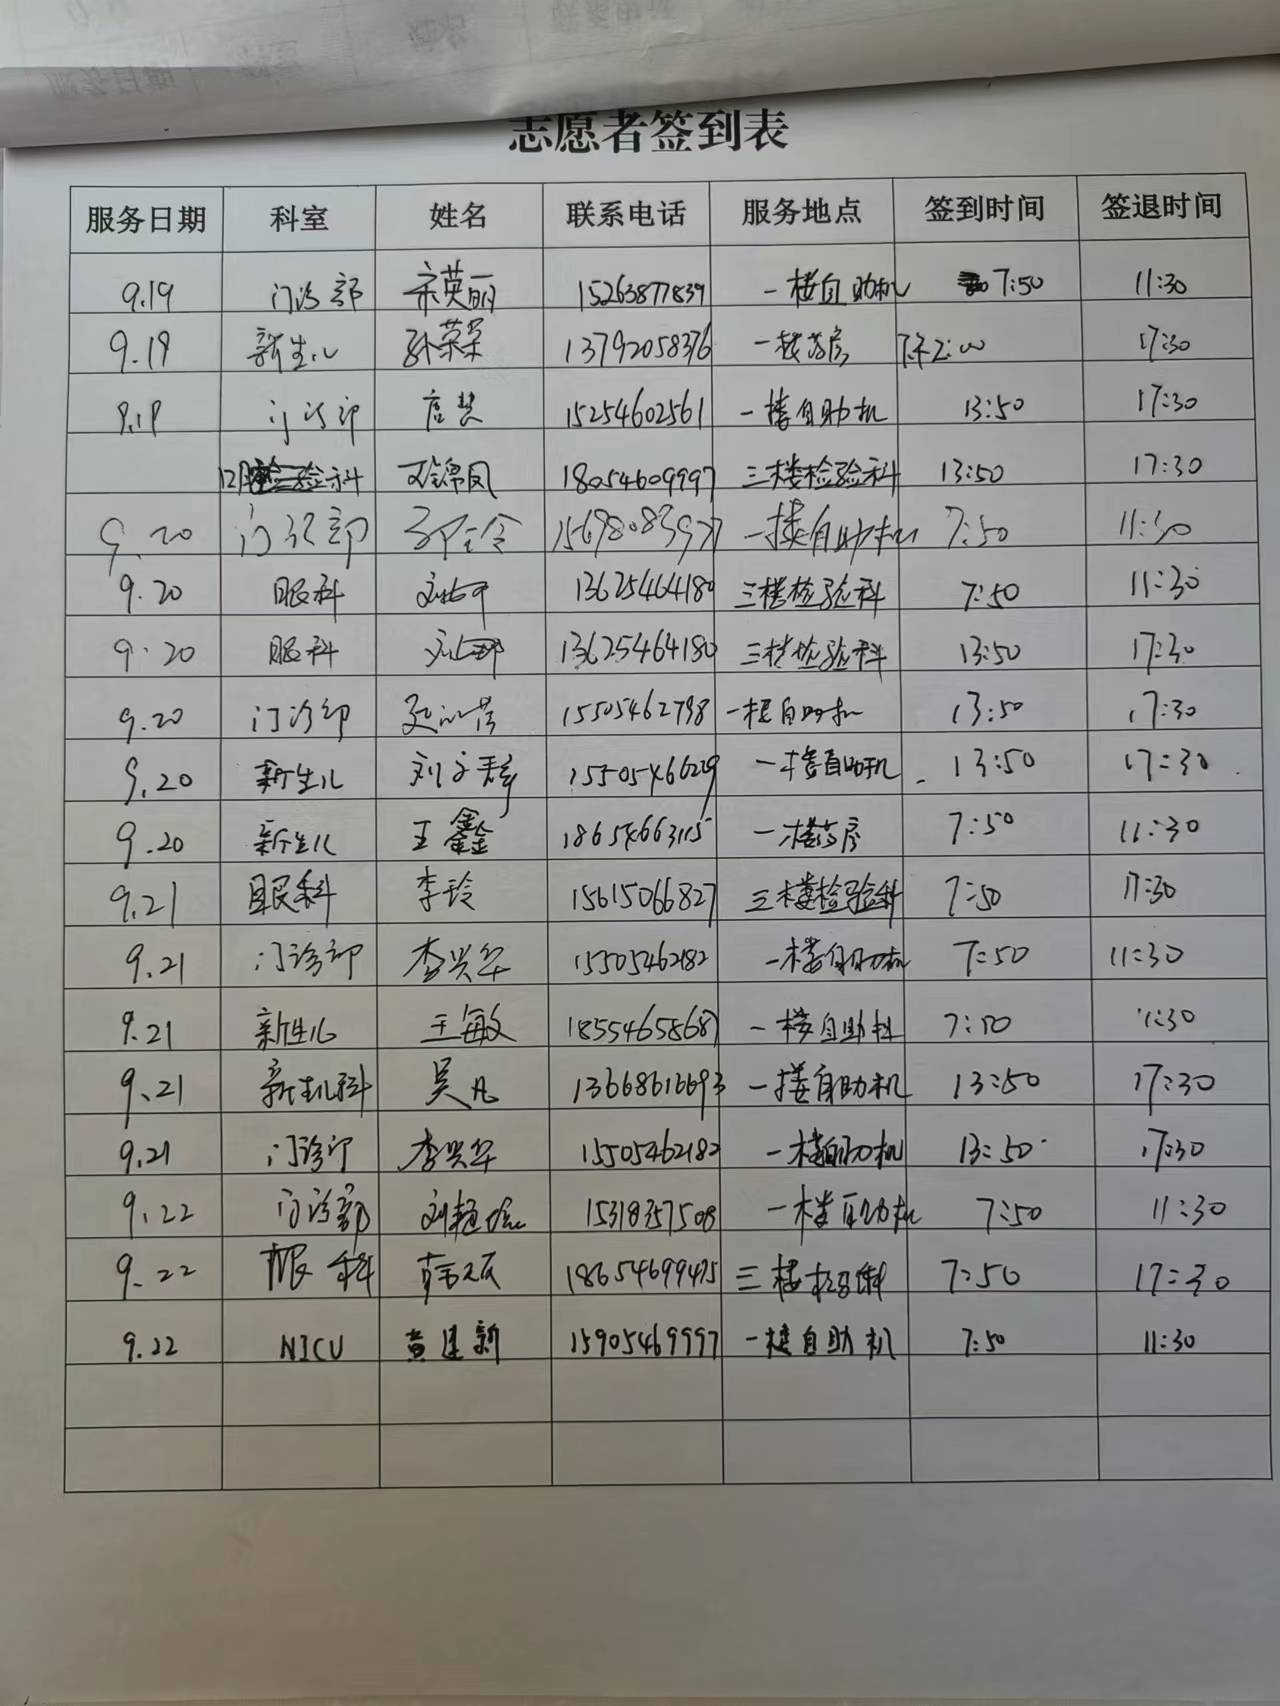 志愿者签到表
服务日期 科室 姓名 联系电话 服务地点 签到时间 签退时间
9.19 门诊部 宋英丽 15263877839 一楼自助机 7:50 11:30
9.19 新生儿 孙荣荣 13792058376 一楼药房 下午2:00 17:30
9.19 门诊部 15254602561 一楼自助机 13:50 17:30
检验科 王锦凤 18054609997 三楼检验科 13:50 17:30
9.20 门诊部 15698083977 一楼自助机 7:50 11:30
9.20 眼科 13625464180 三楼检验科 7:50 11:30
9.20 眼科 13625464180 三楼检验科 13:50 17:30
9.20 门诊部 15505462798 一楼自助机 13:50 17:30
9.20 新生儿 刘文君 一楼自助机 13:50 17:30
9.20 新生儿 王鑫 18654663115 一楼药房 7:50 11:30
9.21 眼科 李玲 15615066827 三楼检验科 7:50 17:30
9.21 门诊部 李兴华 15505462182 一楼自助机 7:50 11:30
9.21 新生儿 王敏 18554658687 一楼自助机 7:50 11:30
9.21 新生儿科 吴凡 13668616693 一楼自助机 13:50 17:30
9.21 门诊部 李兴华 15505462182 一楼自助机 13:50 17:30
9.22 门诊部 15318357508 一楼自助机 7:50 11:30
9.22 眼科 18654699475 三楼检验科 7:50 17:30
9.22 NICU 黄建新 15905469997 一楼自助机 7:50 11:30